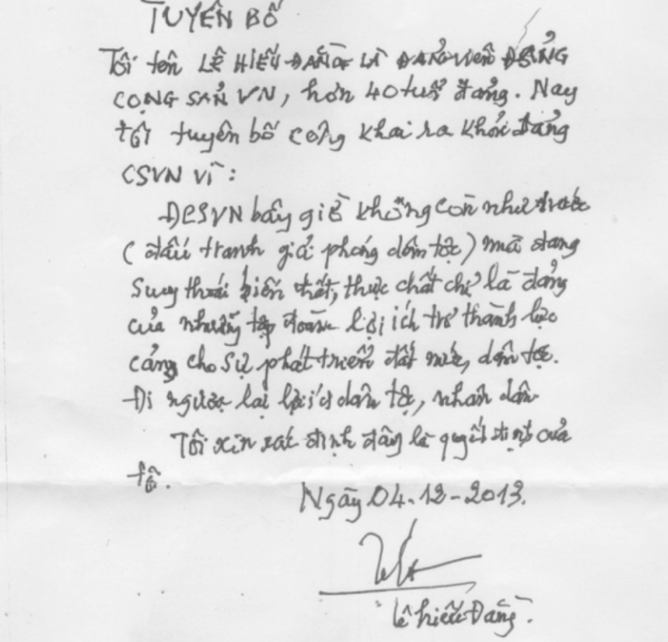 TUYÊN BỐ
Tôi tên LÊ HIẾU ĐẰNG LÀ ĐẢNG viên ĐẢNG
CỘNG SẢN VN, hơn 40 tuổi đảng. Nay
tôi tuyên bố công khai ra khỏi đảng
CSVN vì:
ĐCSVN bây giờ không còn như trước
(đấu tranh giải phóng dân tộc) mà đang
Suy thoái biến chất, thực chất chỉ là đảng
của những tập đoàn lợi ích trở thành lực
cảng cho sự phát triển đất nước, dân tộc.
Đi ngược lại lợi ích dân tộc, nhân dân
Tôi xin xác định đây là quyết định của
tôi.
Ngày 04-12-2013.
Lê Hiếu Đằng.